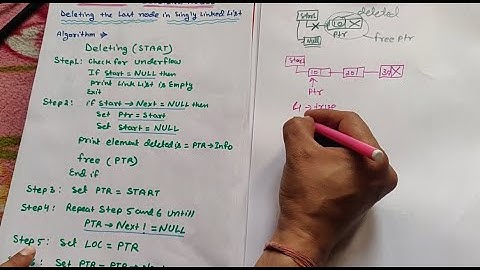 Deleting the Last node in Singly Linked List
Algorithm
Deleting (START)
Step1: Check for underflow
If Start = NULL then
print Link List is Empty
Exit
Step2: if Start → Next = NULL then
Set Ptr = Start
Set Start = NULL
print element deleted is = PTR → Info
free (PTR)
End if
Step 3: Set PTR = START
Step 4: Repeat Step 5 and 6 until
PTR → Next != NULL
Step 5: Set LOC = PTR
Set PTR = PTR →
Start
deleted
10
Null
Ptr
free ptr
Start
10
20
30
Ptr